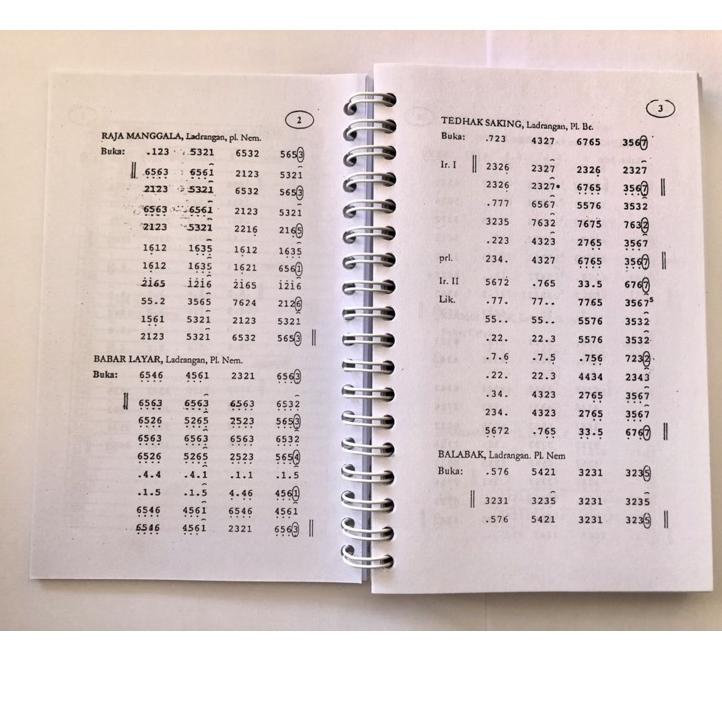 2
RAJA MANGGALA, Ladrangan, pl. Nem.
Buka: .123 5321 6532 5653
6563 6561 2123 5321
2123 5321 6532 5653
6563 6561 2123 5321
2123 5321 2216 2165
1612 1635 1612 1635
1612 1635 1621 6561
2165 1216 2165 1216
55.2 3565 7624 2126
1561 5321 2123 5321
2123 5321 6532 5653
BABAR LAYAR, Ladrangan, Pl. Nem.
Buka: 6546 4561 2321 6563
6563 6563 6563 6532
6526 5265 2523 5653
6563 6563 6563 6532
6526 5265 2523 5654
.4.4 .4.1 .1.1 .1.5
.1.5 .1.5 4.46 4561
6546 4561 6546 4561
6546 4561 2321 6563
3
TEDHAK SAKING, Ladrangan, Pl. Br.
Buka: .723 4327 6765 3567
Ir. I 2326 2327 2326 2327
2326 2327 6765 3567
.777 6567 5576 3532
3235 7632 7675 7632
.223 4323 2765 3567
prl. 234. 4327 6765 3567
Ir. II 5672 .765 33.5 6767
Lik. .77. 77.. 7765 3567⁵
55.. 55.. 5576 3532
.22. 22.3 5576 3532
.7.6 .7.5 .756 7232
.22. 22.3 4434 2343
.34. 4323 2765 3567
234. 4323 2765 3567
5672 .765 33.5 6767
BALABAK, Ladrangan. Pl. Nem
Buka: .576 5421 3231 3235
3231 3235 3231 3235
.576 5421 3231 3235